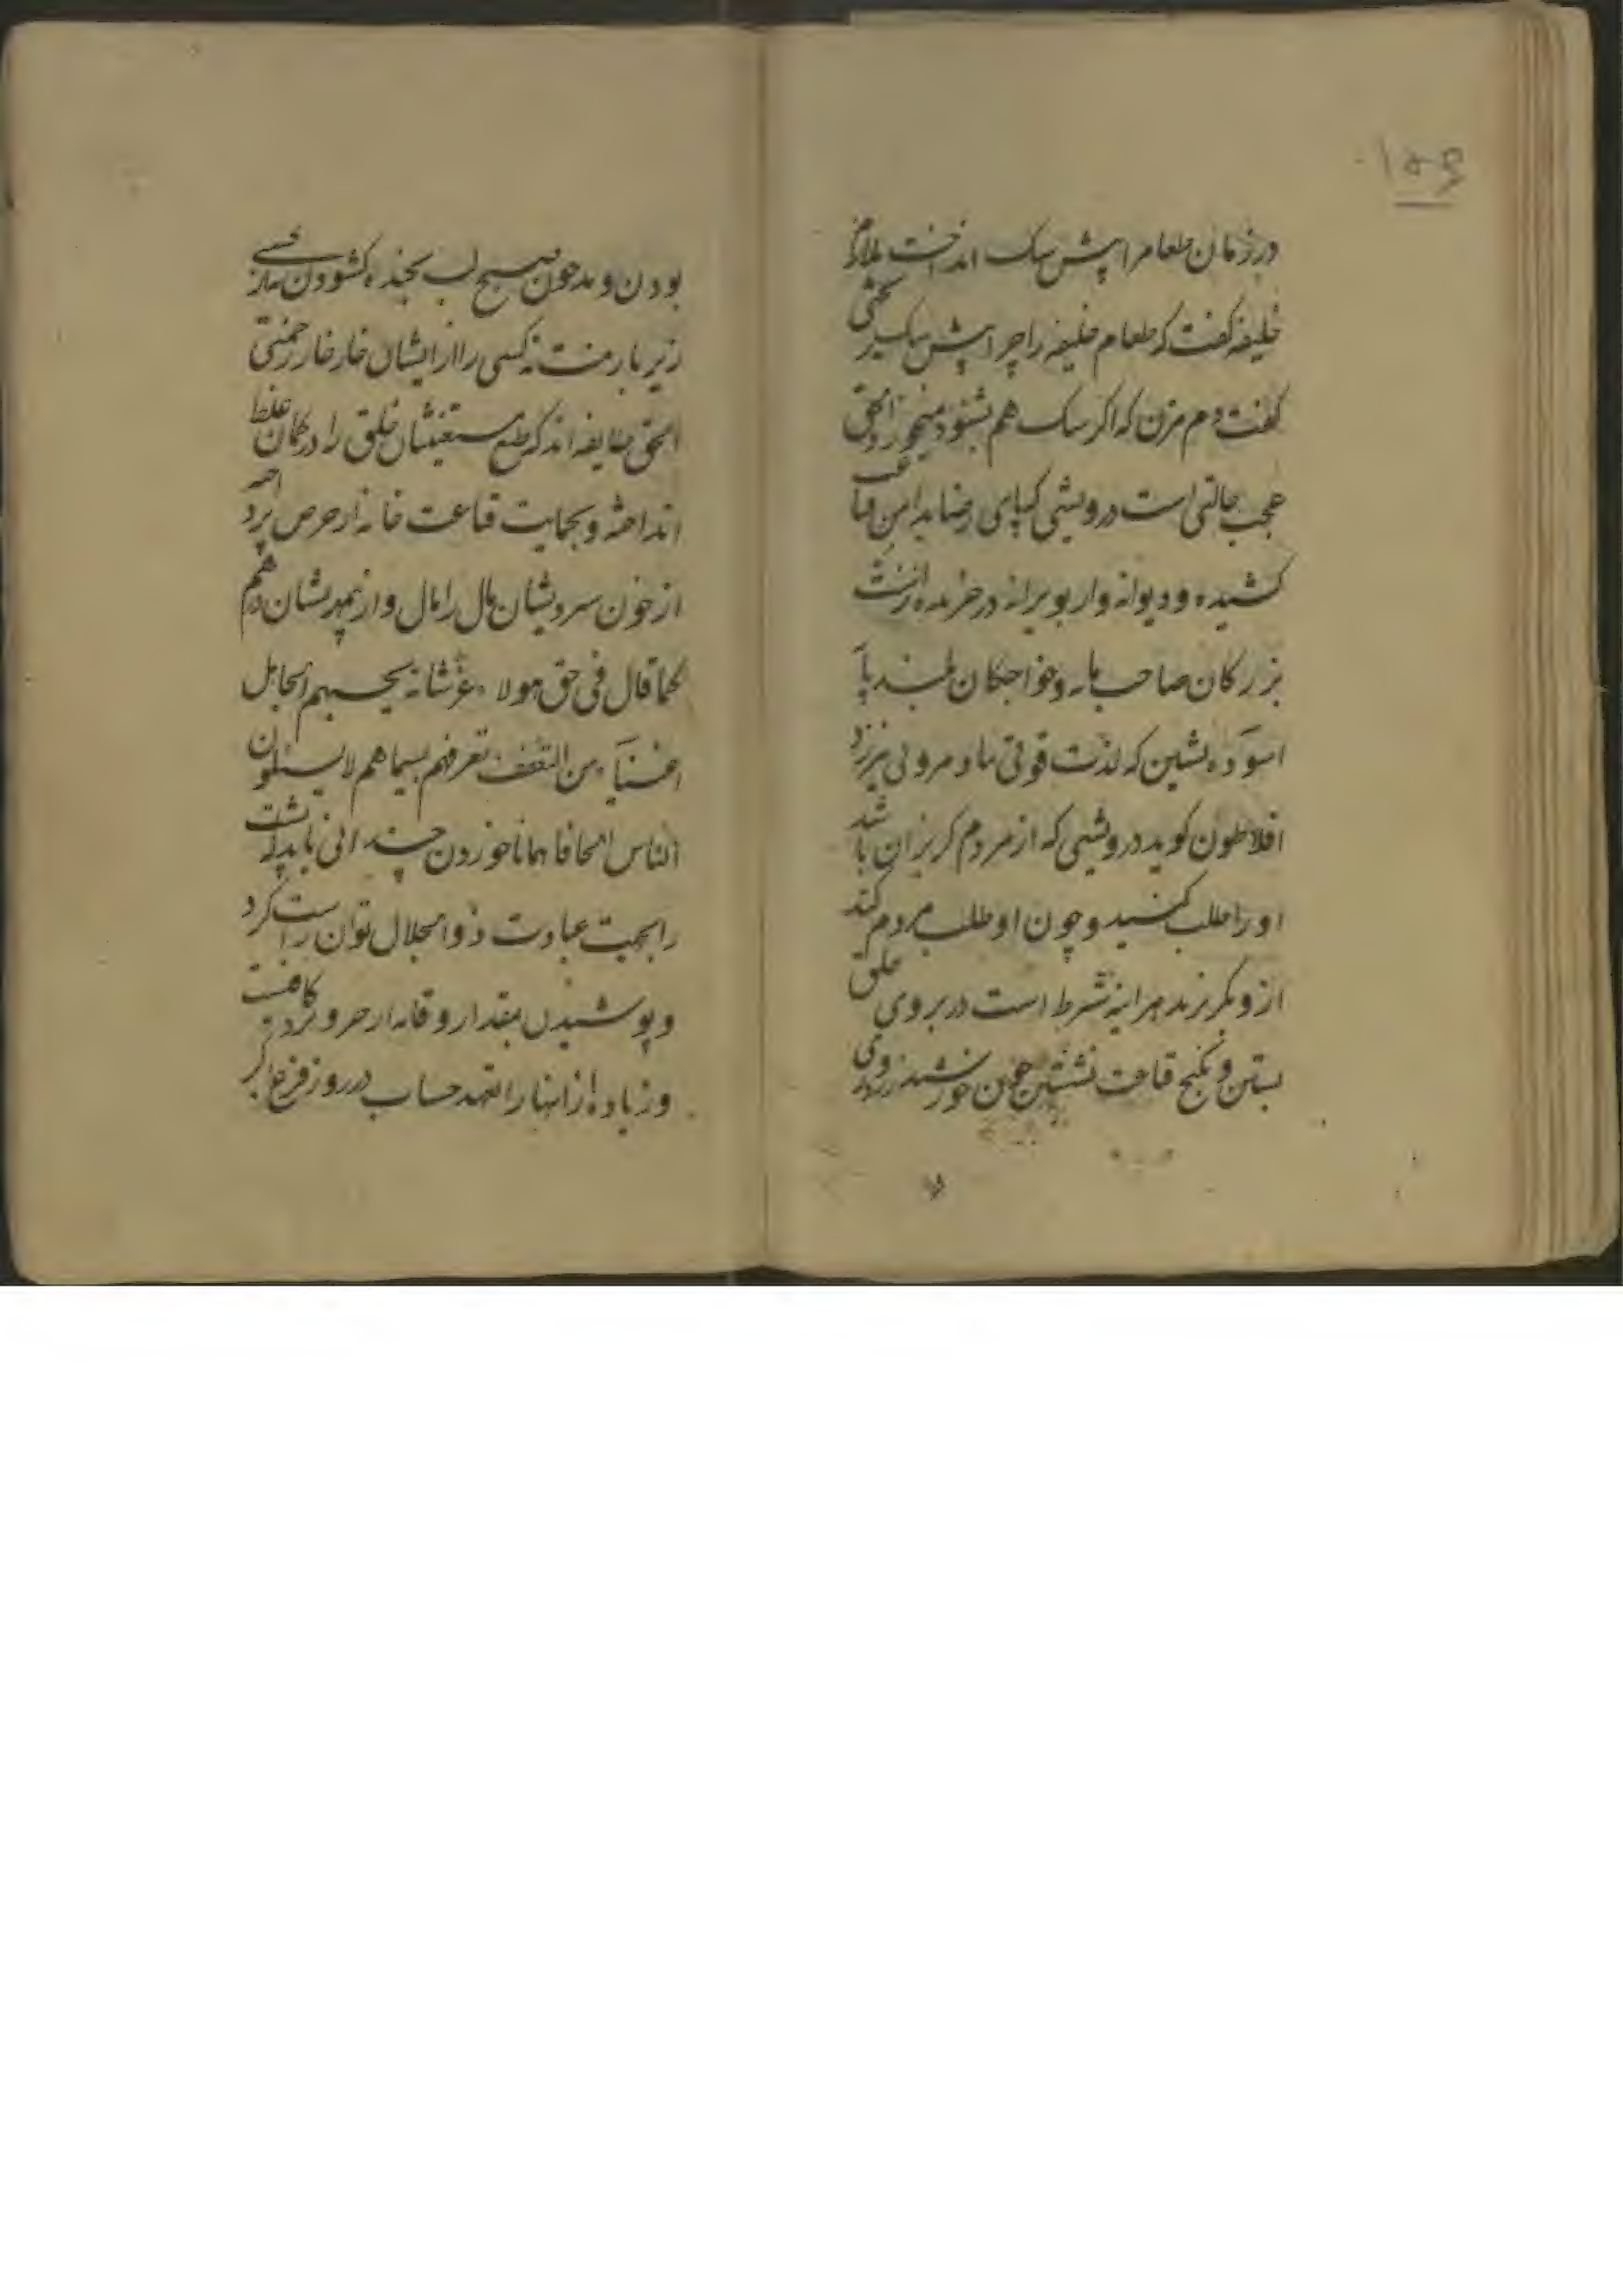 ۱۵۶
در زمان طعام را پیش سک انداخت ملازم
خلیفه کفت که طعام خلیفه را چرا پیش سک می‌ریختی
کفت دم مزن که اگر سک هم بشنود نمیخورد الحق
عجب حالتی است درویشی که پای رضا بدامن قناعت
کشیده و دیوانه وار بویرانه در خزیده را نشست
بزرکان صاحب مایه و خواجکان بلند پایه
اسوده بنشین که لذت قوتی بنا و مرونی نیرزد
افلاطون کوید درویشی که از مردم کریزان باشد
او را طلب کنید و چون او طلب مردم کند
ازو بکریزید هر اینه شرط است در بروی خلق
بستن و بکنج قناعت نشستن چون خورشید روی
بودن و چون صبح لب بخنده کشودن نه از کسی
زیر بار منت نه کسی را از ایشان خار خار زحمتی
الحق طایفه اند که طبع مستغنیشان خلق را در کمان غلط
انداخته و بحمایت قناعت خانه از حرص پرداخته
از خون سردیشان مال را مال و از بیمهریشان درهم
کما قال فی حق هولاء عز شانه یحسبهم الجاهل
اغنیاء من التعفف تعرفهم بسیماهم لا یسئلون
الناس الحافا همانا خوردن چندانی باید که پشت
را بجهت عبادت ذو الجلال توان راست کرد
و پوشیدن بمقدار وقایه از حر و برد کافیست
و زیاده از اینها را تعهد حساب در روز فزع اکبر